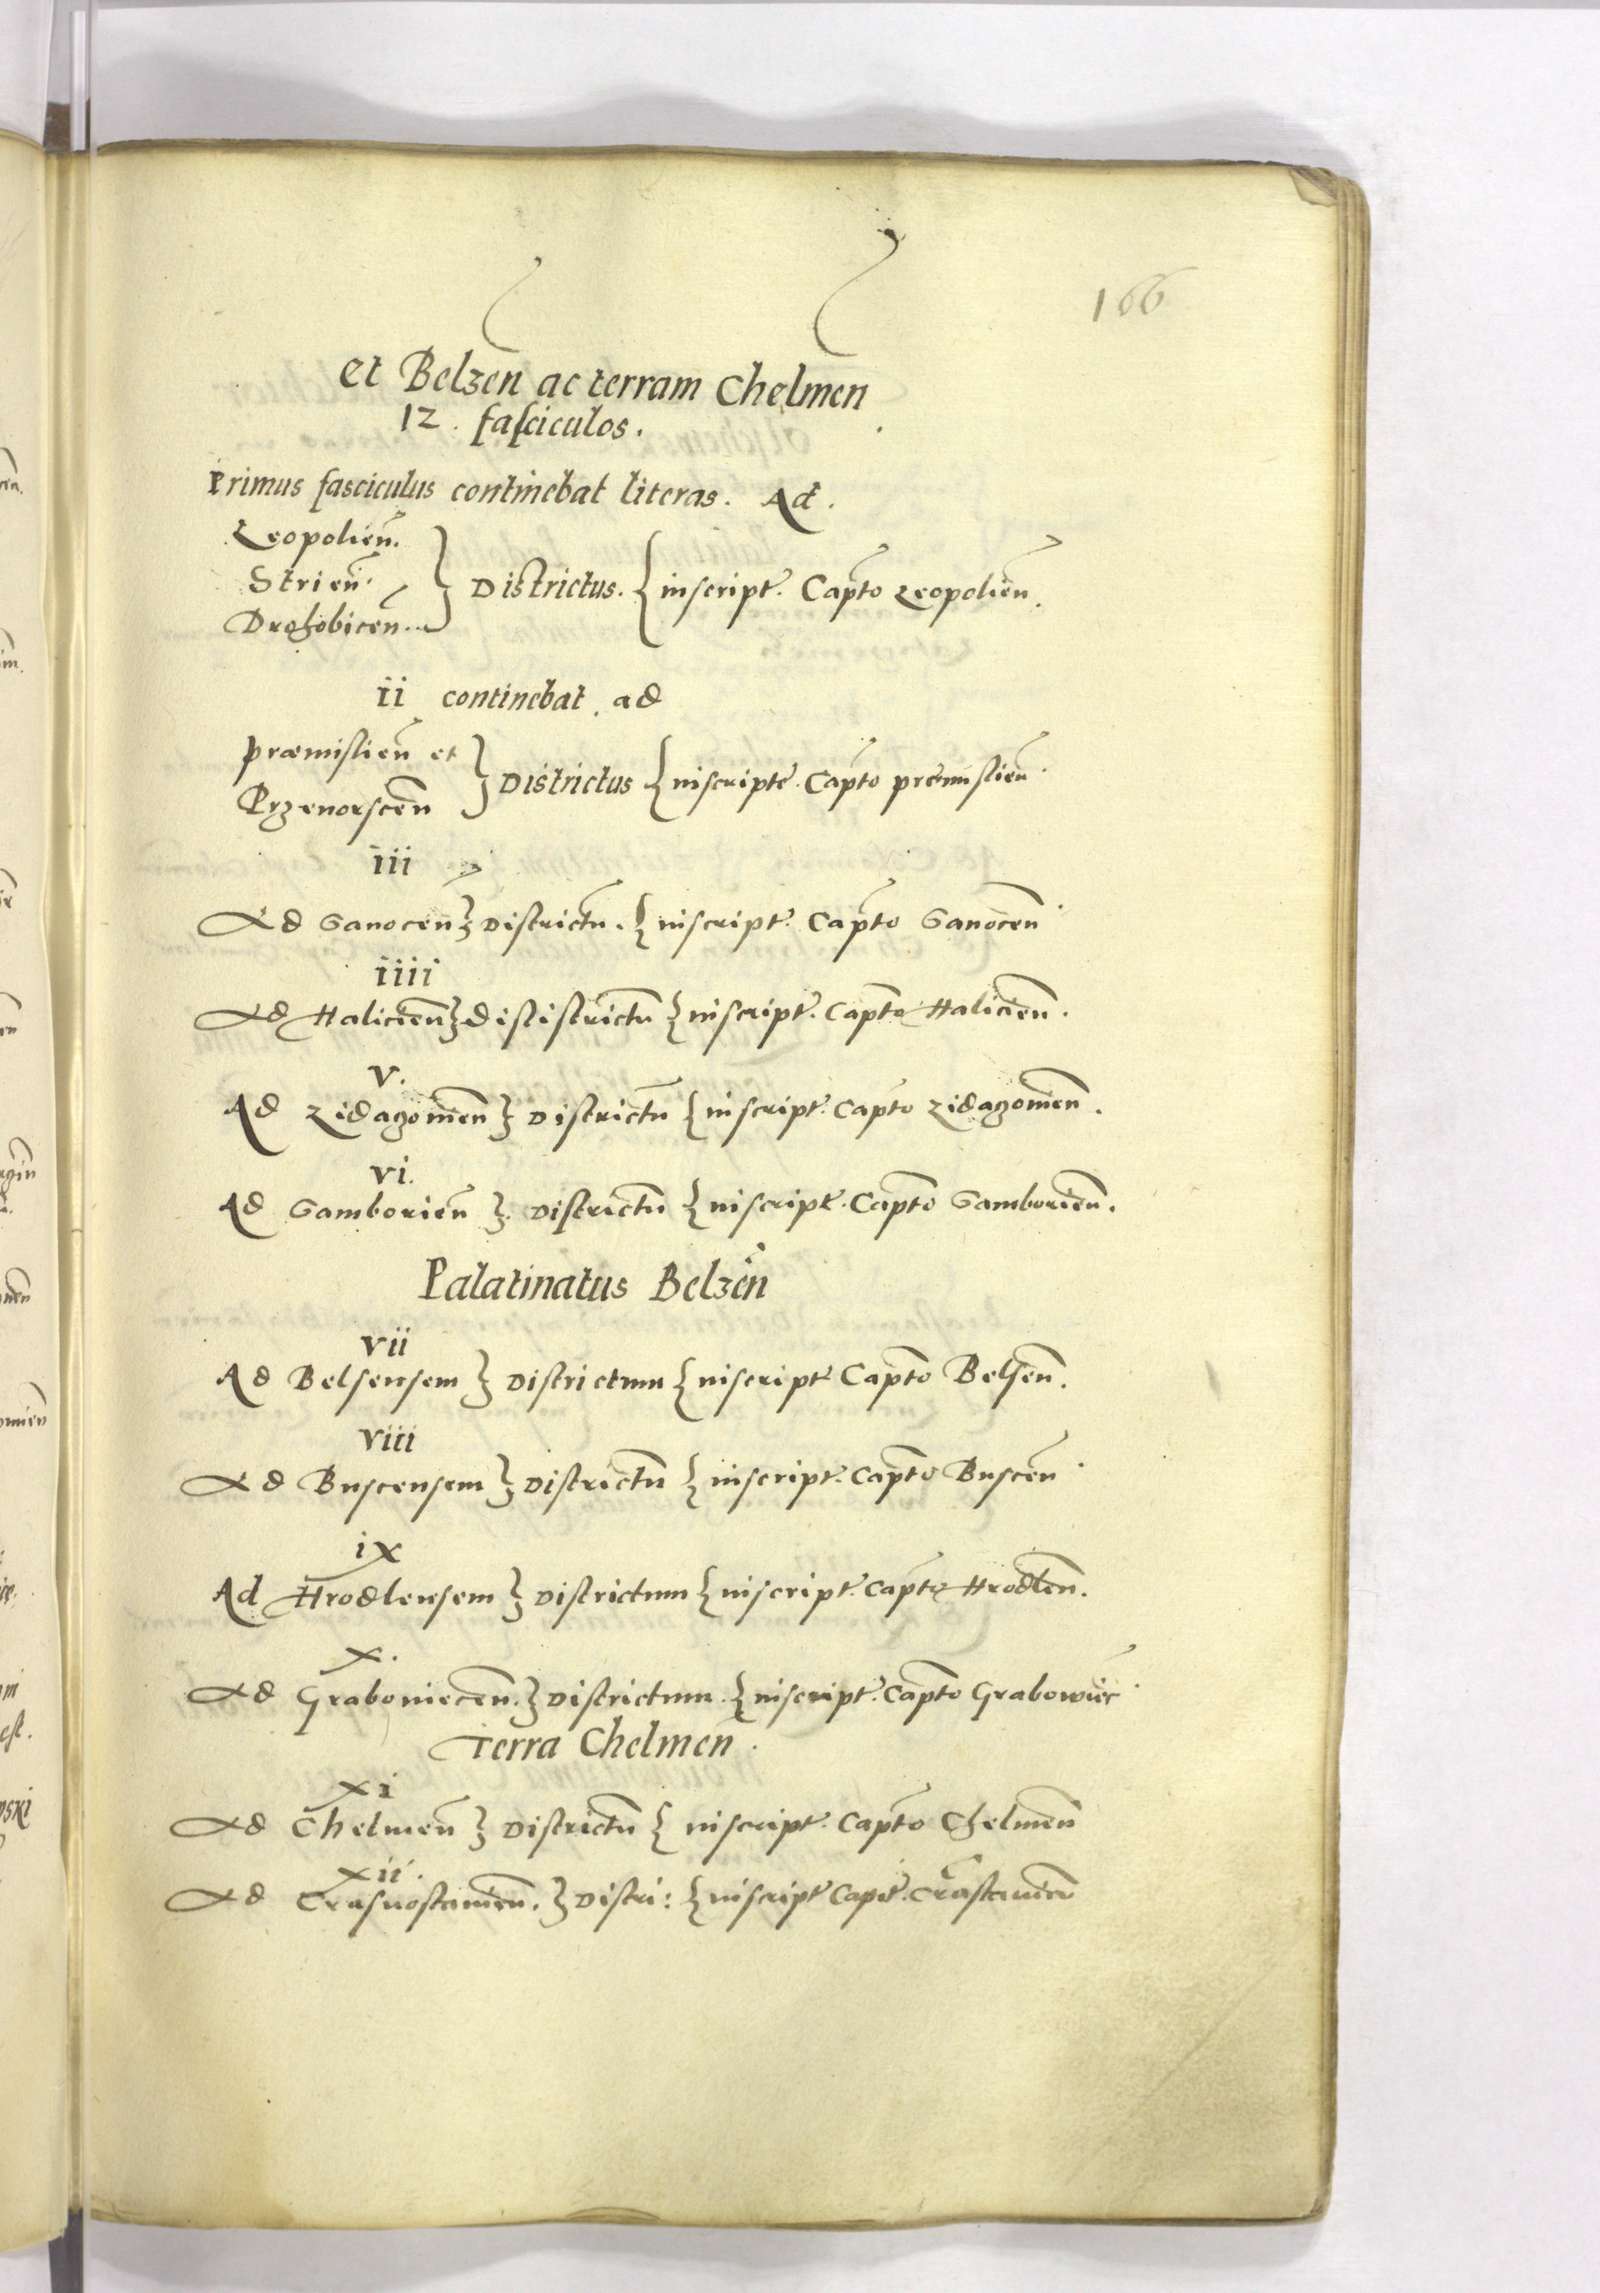 166
et Belzen̄ ac terram Chelmen̄
12. fasciculos.
Primus fasciculus continebat literas. Ad.
Leopolien̄.
Strien̄. } Districtus. { inscript. Capto Leopolien̄.
Drohobicen̄.
ii continebat. ad
Præmislien̄ et } Districtus { inscripte. Capto premislien̄.
Przeworscen̄
iii
Ad Sanocen̄ } Districtū. { inscript. Capto Sanocen̄
iiii
Ad Halicien̄ } dististrictū { inscript. Capto Halicien̄.
v.
Ad Zidaczouien̄ } Districtū { inscript. Capto Zidaczouien̄.
vi.
Ad Samborien̄ } Districtū { inscript. Capto Samborien̄.
Palatinatus Belzen̄
vii
Ad Belsensem } Districtum { inscript. Capto Belsen̄.
viii
Ad Buscensem } Districtū { inscript. Capto Buscen̄
ix
Ad Hrodlensem } Districtum { inscript. Capto Hrodlen̄.
x.
Ad Grabouiecen̄. } Districtum. { inscript. Capto Grabowiec
Terra Chelmen̄.
xi
Ad Chelmen̄ } Districtū { inscript. Capto Chelmen̄
xii.
Ad Crasnostauien̄. } Distri: { inscript. Capit.